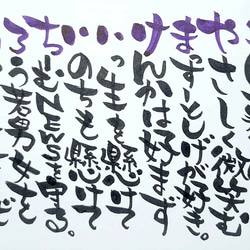 やさしく微笑む
まっすーとしげが好き。
けんかは好まず
いっ生を懸けて
いのちも懸けて
ちーむNEWSを守る。
ろう若男女を